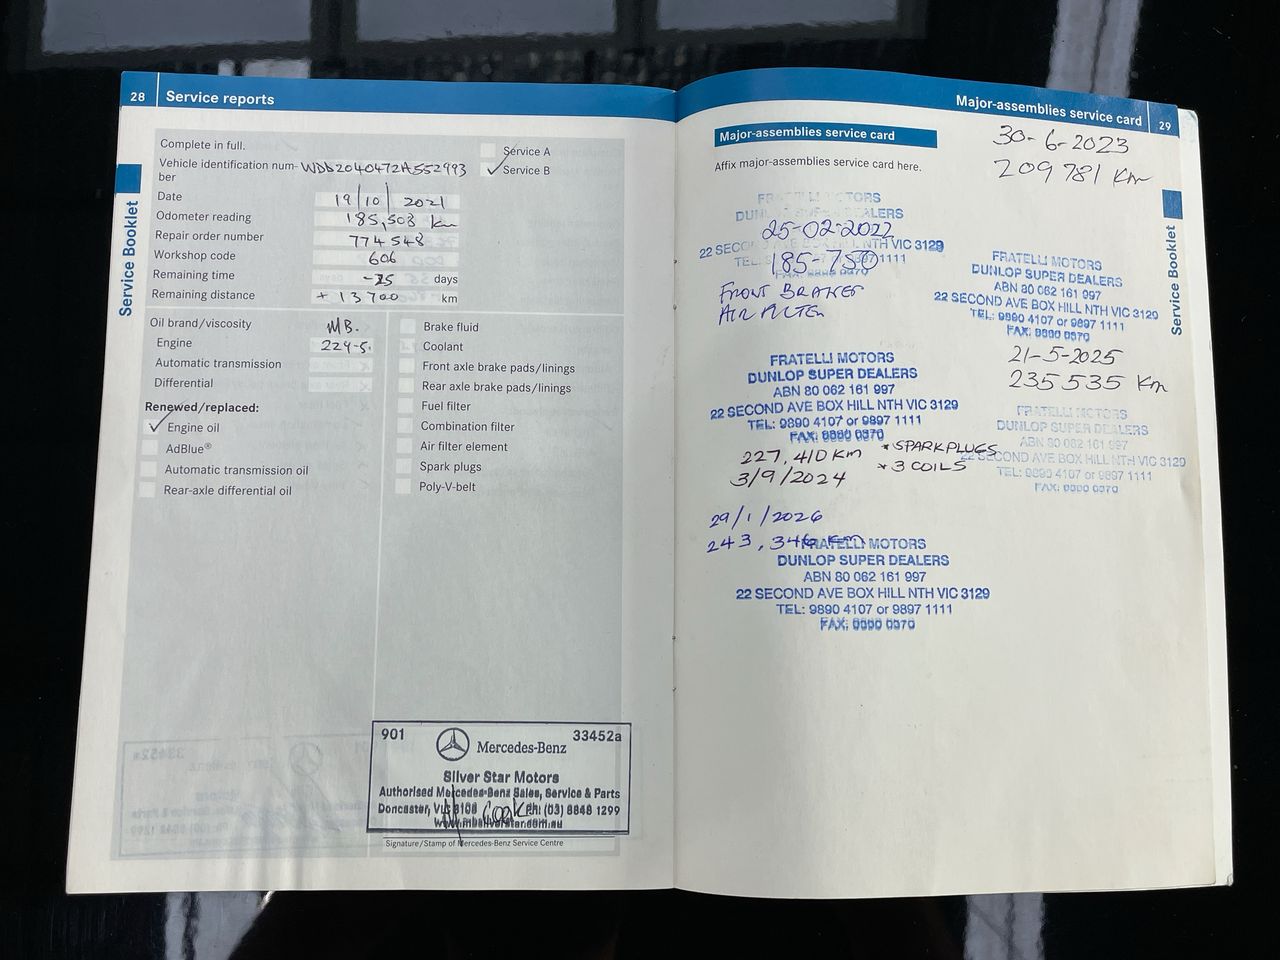 28 Service reports
Complete in full.
Vehicle identification num-
ber
WDb2040472A552993
Service A
Service B
Date 19/10/2021
Odometer reading 185,503 km
Repair order number 774548
Workshop code 606
Remaining time -25 days
Remaining distance + 13700 km
Oil brand/viscosity MB.
Engine 229-5.
Automatic transmission
Differential
Renewed/replaced:
Engine oil
AdBlue®
Automatic transmission oil
Rear-axle differential oil
Brake fluid
Coolant
Front axle brake pads/linings
Rear axle brake pads/linings
Fuel filter
Combination filter
Air filter element
Spark plugs
Poly-V-belt
Service Booklet
901 33452a
Mercedes-Benz
Silver Star Motors
Authorised Mercedes-Benz Sales, Service & Parts
Doncaster, Vic 3108 Ph: (03) 8848 1299
www.mbsilverstar.com.au
Signature/Stamp of Mercedes-Benz Service Centre
Major-assemblies service card 29
Major-assemblies service card
Affix major-assemblies service card here.
FRATELLI MOTORS
DUNLOP SUPER DEALERS
25-02-2022
22 SECOND AVE BOX HILL NTH VIC 3129
185-750
FRONT BRAKES
AIR FILTER
FRATELLI MOTORS
DUNLOP SUPER DEALERS
ABN 80 062 161 997
22 SECOND AVE BOX HILL NTH VIC 3129
TEL: 9890 4107 or 9897 1111
FAX: 9890 0370
227,410 KM * SPARK PLUGS
3/9/2024 * 3 COILS
29/1/2026
243,346 km
FRATELLI MOTORS
DUNLOP SUPER DEALERS
ABN 80 062 161 997
22 SECOND AVE BOX HILL NTH VIC 3129
TEL: 9890 4107 or 9897 1111
FAX: 9890 0370
30-6-2023
209781 Km
FRATELLI MOTORS
DUNLOP SUPER DEALERS
ABN 80 062 161 997
22 SECOND AVE BOX HILL NTH VIC 3129
TEL: 9890 4107 or 9897 1111
FAX: 9890 0370
21-5-2025
235535 Km
FRATELLI MOTORS
DUNLOP SUPER DEALERS
ABN 80 062 161 997
22 SECOND AVE BOX HILL NTH VIC 3129
TEL: 9890 4107 or 9897 1111
FAX: 9890 0370
Service Booklet